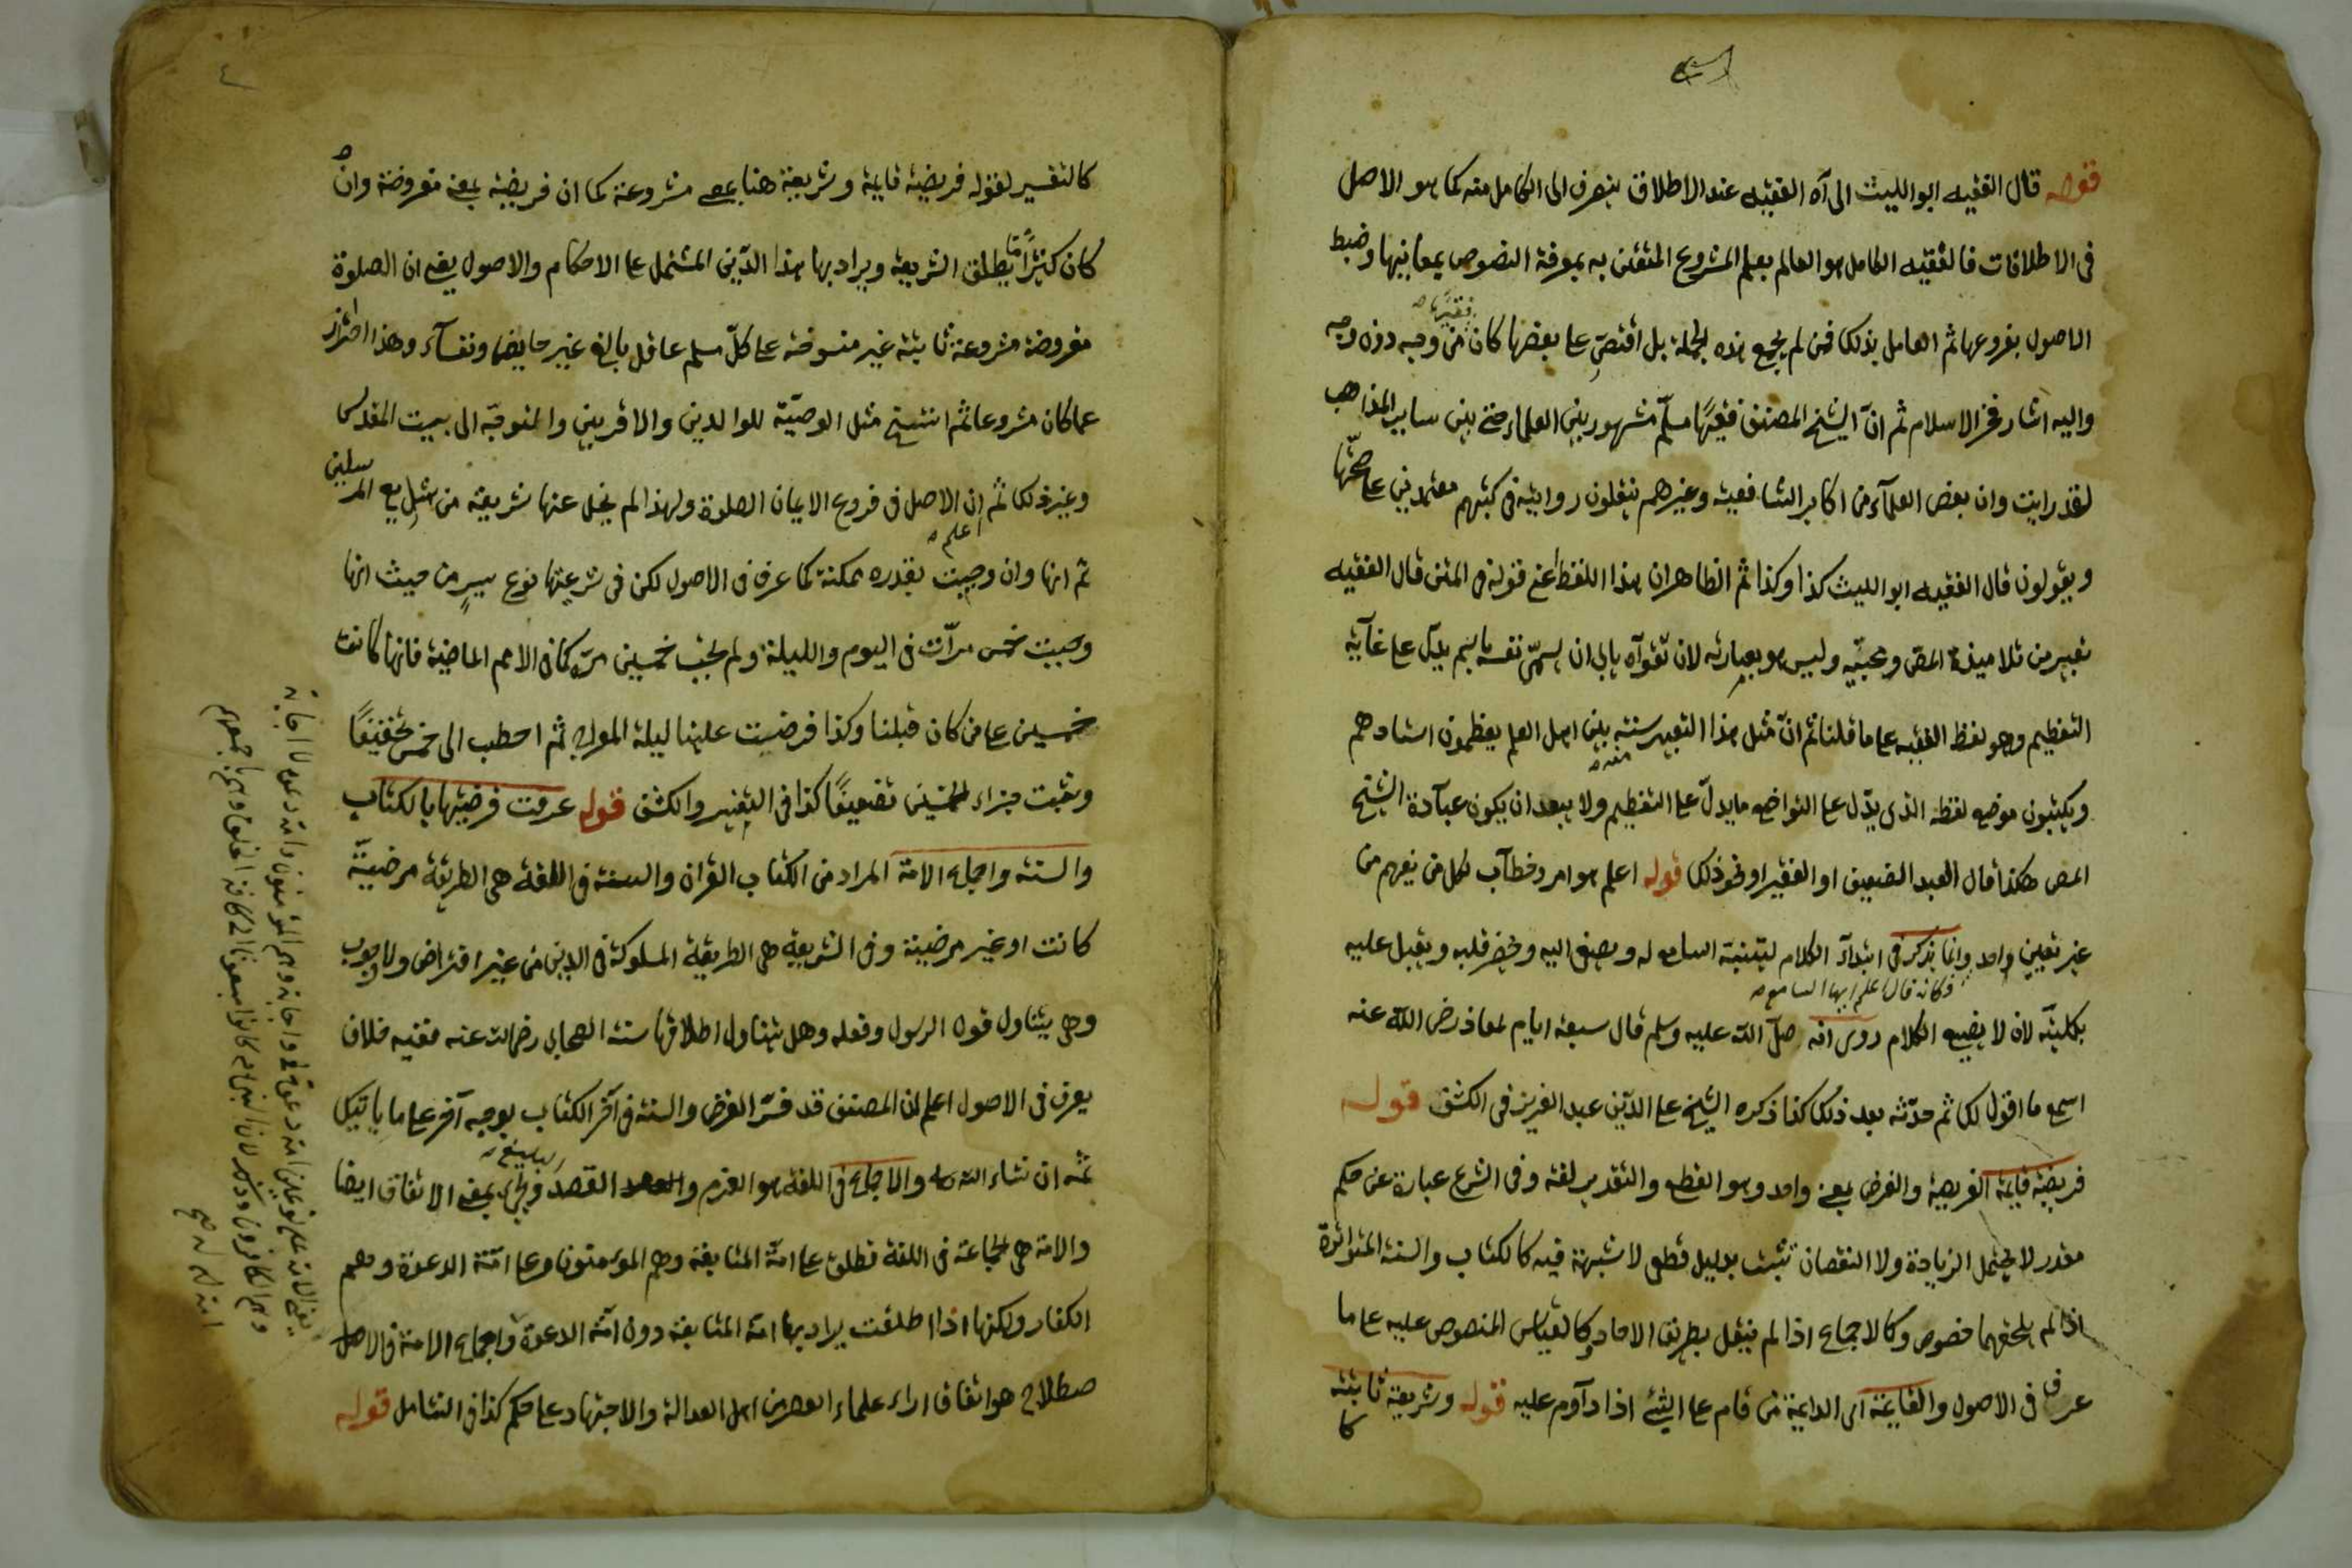 قوله قال الفقيه ابو الليث الى آه الفقيه عند الاطلاق ينصرف الى الكامل منه كما هو الاصل
فى الاطلاقات فالفقيه الكامل هو العالم بعلم المشروع المتقن به بمعرفة النصوص بمعانيها وضبط
الاصول بفروعها ثم العامل بذلك فمن لم يجمع هذه الجملة بل اقتصر على بعضها كان فقيها من وجه دون وجه
واليه اشار فخر الاسلام ثم ان الشيخ المصنف فقيها مسلم مشهور بين العلماء حتى بين ساير المذاهب
لقد رايت وان بعض العلماء من اكابر الشافعية وغيرهم ينقلون روايته فى كتبهم معتمدين على صحتها
ويقولون قال الفقيه ابو الليث كذا وكذا ثم الظاهر ان هذا اللفظ اعنى قوله فى المتن قال الفقيه
تعبير من تلاميذة المص ومحبيه وليس هو بعبارته لان تقواه يابى ان يسمى نفسه باسم يدل على غاية
التعظيم وهو لفظ الفقيه على ما قلنا ثم ان مثل هذا التعبير سنة بين اهل العلم يعظمون استادهم
ويكتبون موضع لفظه الذى يدل على التواضع ما يدل على التعظيم ولا يبعد ان يكون عبارة الشيخ
المص هكذا قال العبد الضعيف او الفقير او نحو ذلك قوله اعلم هو امر وخطاب لكل من يفهم من
غير تعيين واحد وانما يذكر فى ابتداء الكلام لتنبيه السامع له ويصغى اليه ويحضر قلبه ويقبل عليه
وكانه قال اعلم ايها السامع
بكليته لان لا يضيع الكلام روى انه صلى الله عليه وسلم قال سبعة ايام لمعاذ رضى الله عنه
اسمع ما اقول لك ثم حدثه بعد ذلك كذا ذكره الشيخ علا الدين عبد العزيز فى الكشف قوله
فريضة قايمة الفريضة والفرض بمعنى واحد وهو القطع والتقدير لغة وفى الشرع عبارة عن حكم
مقدر لا يحتمل الزيادة ولا النقصان تثبت بدليل قطعى لا شبهة فيه كالكتاب والسنة المتواترة
اذا لم يلحقهما خصوص وكالاجماع اذا لم ينقل بطريق الاحاد وكالقياس المنصوص عليه على ما
عرف فى الاصول والقايمة اى الدايمة من قام على الشئ اذا داوم عليه قوله وشريعة ثابتة
كا
كالتفسير لقوله فريضة قايمة وشريعة هنا بمعنى مشروعة كما ان فريضة بمعنى مفروضة وان
كان كثيرا ما يطلق الشريعة ويراد بها هذا الدين المشتمل على الاحكام والاصول يعنى ان الصلوة
مفروضة مشروعة ثابتة غير منسوخة على كل مسلم عاقل بالغ غير حايض ونفساء وهذا احتراز
عما كان مشروعا ثم انتسخ مثل الوصية للوالدين والاقربين والتوجه الى بيت المقدس
وغير ذلك ثم ان الاصل فى فروع الايمان الصلوة ولهذا لم يخل عنها شريعة من شرايع المرسلين
اعلم
ثم انها وان وجبت بقدره ممكنة كما عرف فى الاصول لكن فى شرعيتها نوع يسير من حيث انها
وجبت خمس مرات فى اليوم والليلة ولم تجب خمسين مرة كما فى الامم الماضية فانها كانت
خمسين على من كان قبلنا وكذا فرضيت علينا ليلة المعراج ثم احطت الى خمس تخفيفا
وبقيت جزاء الخمسين تضعيفا كذا فى التيسير والكشف قوله عرفت فرضيتها بالكتاب
والسنة واجماع الامة المراد من الكتاب القران والسنة فى اللغة هى الطريقة مرضية
كانت او غير مرضية وفى الشريعة هى الطريقة المسلوكة فى الدين من غير افتراض ولا وجوب
وهى يتناول قول الرسول وفعله وهل يتناول اطلاقها سنة الصحابى رضى الله عنه ففيه خلاف
يعرف فى الاصول اعلم ان المصنف قد فسر الفرض والسنة فى آخر الكتاب بوجه آخر على ما ياتيك
ثمه ان شاء الله تعالى والاجماع فى اللغة هو العزم والقصد البليغ ويجئ بمعنى الاتفاق ايضا
والامة هى الجماعة فى اللغة تطلق على امة المتابعة وهم المؤمنون وعلى امة الدعوة وهم
الكفار ولكنها اذا اطلقت يراد بها امة المتابعة دون امة الدعوة واجماع الامة فى الا
صطلاح هو اتفاق اراء علماء العصر من اهل العدالة والاجتهاد على حكم كذا فى الشامل قوله